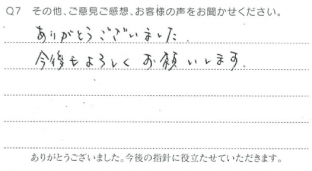 Q7 その他、ご意見ご感想、お客様の声をお聞かせください。
ありがとうございました.
今後もよろしくお願いします.
ありがとうございました。今後の指針に役立たせていただきます。